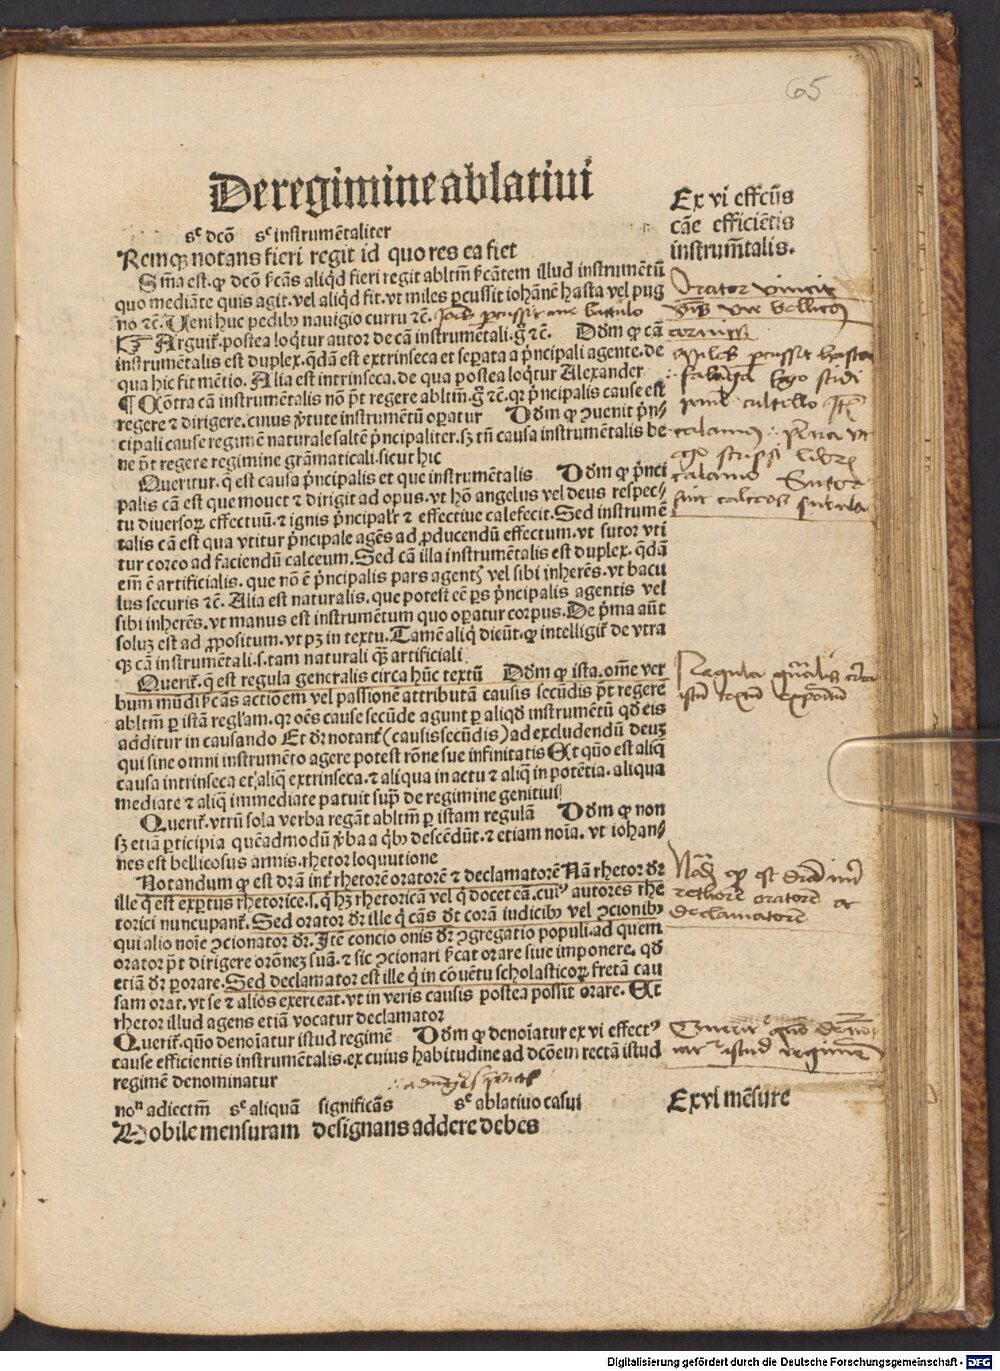 65
De regimine ablatiui
sᶜ dcō sᶜ instrumētaliter
Remqꝫ notans fieri regit id quo res ea fiet
Ex vi effcūs
cāe efficiētis
instrum̄talis.
Sm̄a est. ꝙ dcō ſcās aliq̇d fieri regit abltm̄ ſcātem illud instrumētū
quo mediāte quis agit. vel aliq̇d fit. vt miles ꝑcussit iohānē hasta vel pug
no ⁊c̄. Veni huc pedibꝰ nauigio curru ⁊c̄.
☞ Arguit̄. postea loq̇tur autor de cā instrumētali. g̊ ⁊c̄. Dōm ꝙ cā
instrumētalis est duplex. q̄dā est extrinseca et seꝑata a p̄ncipali agente. de
qua hic fit mētio. Alia est intrinseca. de qua postea loq̇tur Alexander
¶ Cōtra cā instrumētalis nō p̄t regere abltm̄. g̊ ⁊c̄. qꝛ p̄ncipalis cause est
regere ⁊ dirigere. cuius ꝟtute instrumētū oꝑatur Dōm ꝙ ꝯuenit p̄n⸗
cipali cause regimē naturale saltē p̄ncipaliter. sꝫ tn̄ causa instrumētalis be
ne p̄t regere regimine grāmaticali. sicut hic
Queritur. q̄ est causa p̄ncipalis et que instrumētalis Dōm ꝙ p̄nci
palis cā est que mouet ⁊ dirigit ad opus. vt hō angelus vel deus respec⸗
tu diuersoꝝ effectuū. ⁊ ignis p̄ncipalr̄ ⁊ effectiue calefecit. Sed instrumē
talis cā est qua vtitur p̄ncipale agēs ad ꝓducendū effectum. vt sutor vti
tur corco ad faciendū calceum. Sed cā illa instrumētalis est duplex. q̄dā
em̄ ē artificialis. que nō ē p̄ncipalis pars agentꝭ vel sibi inherēs. vt bacu
lus securis ⁊c̄. Alia est naturalis. que potest eē ꝑs p̄ncipalis agentis vel
sibi inherēs. vt manus est instrumētum quo oꝑatur corpus. De p̄ma aūt
soluꝫ est ad ꝓpositum. vt pꝫ in textu. Tamē aliq̇ dicūt. ꝙ intelligit̄ de vtra
qꝫ cā instrumētali. s. tam naturali q̄ꝫ artificiali
Querit̄. q̄ est regula generalis circa hūc textū Dōm ꝙ ista. om̄e ver
bum mūdi ſcās actiōem vel passionē attributā causis secūdis p̄t regere
abltm̄ ꝑ istā regl̄am. qꝛ oēs cause secūde agunt ꝑ aliqd̄ instrumētū qd̄ eis
additur in causando Et dr̄ notant̄ (causis secūdis) ad excludendū deuꝫ
qui sine omni instrumēto agere potest rōne sue infinitatis Et quō est aliq̄
causa intrinseca et aliq̄ extrinseca. ⁊ aliqua in actu ⁊ aliq̄ in potētia. aliqua
mediate ⁊ aliq̄ immediate patuit sup̄ de regimine genitiui
Querit̄. vtrū sola verba regāt abltm̄ ꝑ istam regulā Dōm ꝙ non
sꝫ etiā ꝑticipia quēadmodū ꝟba a q̇bꝰ descēdūt. ⁊ etiam noīa. vt iohan⸗
nes est bellicosus armis. rhetor loquutione
Notandum ꝙ est dr̄ā int̄ rhetorē oratorē ⁊ declamatorē Nā rhetor dr̄
ille q̇ est exꝑtus rhetorice. s. q̇ hꝫ rhetoricā vel q̇ docet eā. cuiꝰ autores rhe
torici nuncupant̄. Sed orator dr̄ ille q̇ cās dt̄ corā iudicibꝰ vel ꝯcionibꝰ
qui alio noīe ꝯcionator dr̄. Itē concio onis dr̄ ꝯgregatio populi. ad quem
orator p̄t dirigere orōnez suā. ⁊ sic ꝯcionari ſcat orare siue imponere. qd̄
etiā dr̄ ꝑorare. Sed declamator est ille q̇ in cōuētu scholasticoꝝ fretā cau
sam orat. vt se ⁊ alios exerceat. vt in veris causis postea possit orare. Et
rhetor illud agens etiā vocatur declamator
Querit̄. quō denoīatur istud regimē Dōm ꝙ denoīatur ex vi effectꝰ
cause efficientis instrumētalis. ex cuius habitudine ad dcōem rectā istud
regimē denominatur
noⁿ adiectm̄ sᶜ aliquā significās sᶜ ablatiuo casui
Nobile mensuram designans addere debes
Ex vi mēsure
Orator vincit
Regula gn̄ralis circa
istū textū
Nōdū ꝙ est dr̄ā int̄
rethorē oratorē ac
declamatorē
Querit̄ quō denōi⸗
tur istud regimen
Digitalisierung gefördert durch die Deutsche Forschungsgemeinschaft - DFG